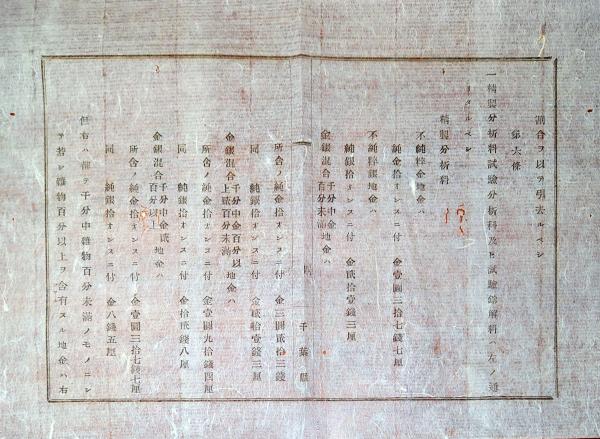 割合ヲ以テ引去ルベシ
第六條
一精製分析料試驗分析料及ビ試驗鎔解料ハ左ノ通
リタルベシ
精製分析料
不純粹金地金ハ
純金拾オンスニ付 金壹圓三拾七錢七厘
不純粹銀地金ハ
純銀拾オンスニ付 金貳拾壹錢三厘
金銀混合千分中金百分未滿地金ハ
千葉縣
所含ノ純金拾オンスニ付 金三圓貳拾三錢
同 純銀拾オンスニ付 金貳拾壹錢三厘
金銀混合千分中金百分以上貳百分未滿地金ハ
所含ノ純金拾オンスニ付 金壹圓九拾錢四厘
同 純銀拾オンスニ付 金拾貳錢八厘
金銀混合千分中金貳百分以上地金ハ
所含ノ純金拾オンスニ付 金壹圓三拾七錢七厘
同 純銀拾オンスニ付 金八錢五厘
但右ハ都テ千分中雜物百分未滿ノモノニシ
テ若シ雜物百分以上ヲ含有スル地金ハ右